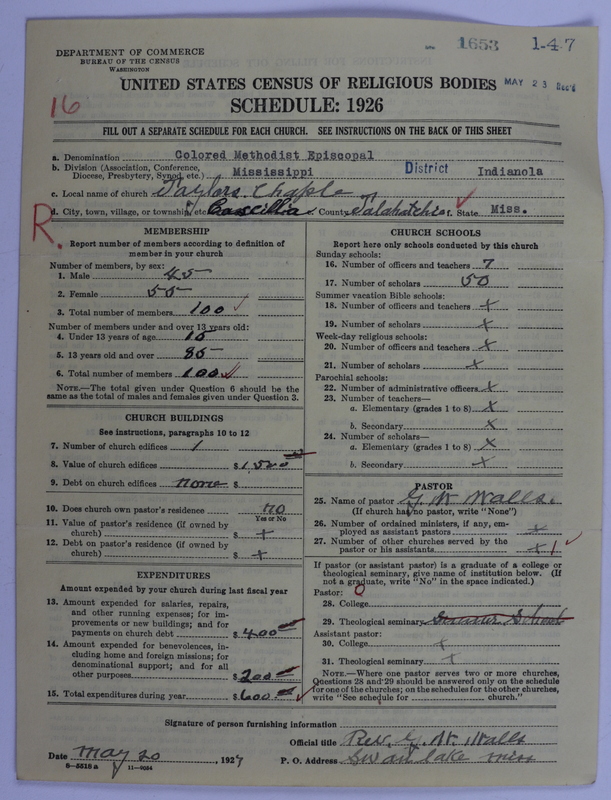 1653 1-47
DEPARTMENT OF COMMERCE
BUREAU OF THE CENSUS
WASHINGTON
UNITED STATES CENSUS OF RELIGIOUS BODIES MAY 23 Rec'd
16
SCHEDULE: 1926
FILL OUT A SEPARATE SCHEDULE FOR EACH CHURCH. SEE INSTRUCTIONS ON THE BACK OF THIS SHEET
a. Denomination Colored Methodist Episcopal
b. Division (Association, Conference, Diocese, Presbytery, Synod, etc.) Mississippi District Indianola
c. Local name of church Taylors Chaple
d. City, town, village, or township, etc. Cascillia County Talahatchie State Miss.
R.
MEMBERSHIP
Report number of members according to definition of
member in your church
Number of members, by sex:
1. Male 45
2. Female 55
3. Total number of members 100
Number of members under and over 13 years old:
4. Under 13 years of age 15
5. 13 years old and over 85
6. Total number of members 100
NOTE.—The total given under Question 6 should be the
same as the total of males and females given under Question 3.
CHURCH BUILDINGS
See instructions, paragraphs 10 to 12
7. Number of church edifices 1
8. Value of church edifices $ 1,500
9. Debt on church edifices none $
10. Does church own pastor's residence no
Yes or No
11. Value of pastor's residence (if owned by
church) $ +
12. Debt on pastor's residence (if owned by
church) $ +
EXPENDITURES
Amount expended by your church during last fiscal year
13. Amount expended for salaries, repairs,
and other running expenses; for im-
provements or new buildings; and for
payments on church debt $ 400
14. Amount expended for benevolences, in-
cluding home and foreign missions; for
denominational support; and for all
other purposes $ 200
15. Total expenditures during year $ 600
CHURCH SCHOOLS
Report here only schools conducted by this church
Sunday schools:
16. Number of officers and teachers 7
17. Number of scholars 50
Summer vacation Bible schools:
18. Number of officers and teachers +
19. Number of scholars +
Week-day religious schools:
20. Number of officers and teachers +
21. Number of scholars +
Parochial schools:
22. Number of administrative officers x
23. Number of teachers—
a. Elementary (grades 1 to 8) x
b. Secondary x
24. Number of scholars—
a. Elementary (grades 1 to 8) x
b. Secondary x
PASTOR
25. Name of pastor G W Walls.
(If church has no pastor, write "None")
26. Number of ordained ministers, if any, em-
ployed as assistant pastors +
27. Number of other churches served by the
pastor or his assistants + 1
If pastor (or assistant pastor) is a graduate of a college or
theological seminary, give name of institution below. (If
not a graduate, write "No" in the space indicated.)
Pastor: 0
28. College
29. Theological seminary Summer School
Assistant pastor:
30. College +
31. Theological seminary +
NOTE.—Where one pastor serves two or more churches,
Questions 28 and 29 should be answered only on the schedule
for one of the churches; on the schedules for the other churches,
write "See schedule for church."
Signature of person furnishing information
Official title Rev. G. W. Walls
Date May 20, 1927 P. O. Address Swan lake miss
8—5518 a 11—9064